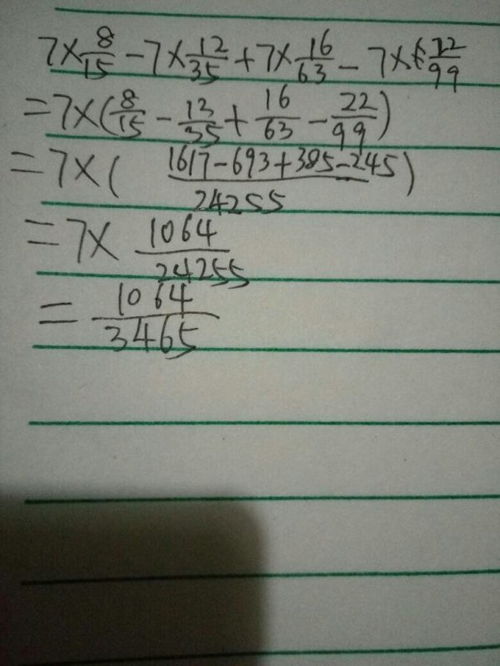 7×8/15-7×12/35+7×16/63-7×22/99
=7×(8/15-12/35+16/63-22/99)
=7×(1617-693+385-245/24255)
=7×1064/24255
=1064/3465